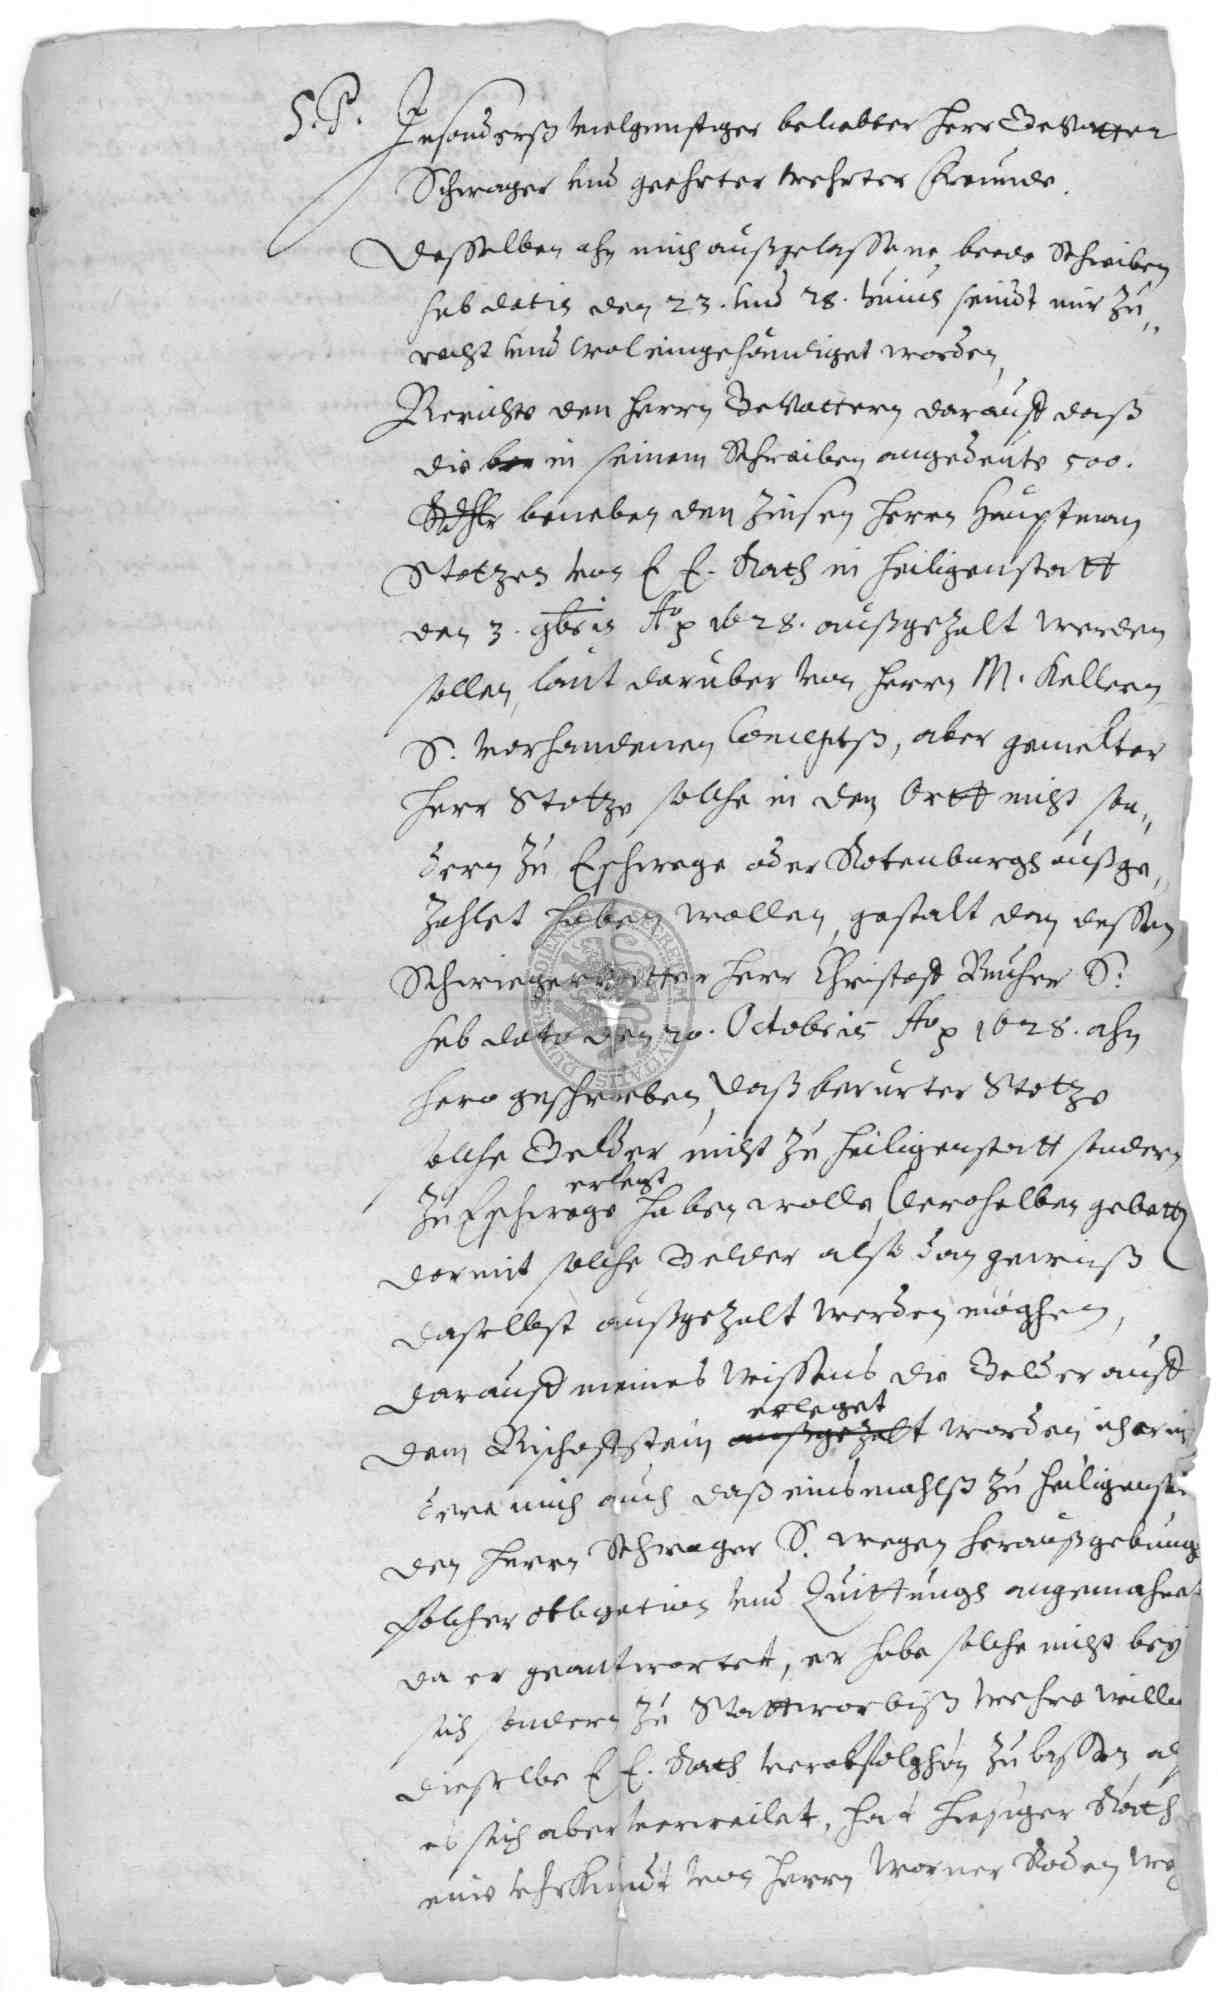 S. P. Insonderß vielgunstiger geliebter Herr Gevatter
Schwager und geehrter wehrter Freunde.
Desselben ahn mich außgelassene beede Schreiben
sub datis den 23. und 28. huius seindt mir zu„
recht und wol eingehändiget worden,
Berichte den Herrn Gevattern darauff daß
die in seinem Schreiben angedeute 500.
beneben den Zinsen Herrn Hauptman
Stotzen von E E. Rath in Heiligenstatt
den 3. 9bris Ao 1628. außgezalt werden
sollen, laut daruber von Herrn M. Kellern
S. vorhandenen Conceptß, aber gemelter
Herr Stotze solche in den Ortt nicht son„
dern zu Eschwege oder Rotenburgh außge„
zahlet haben wollen, gestalt den dessen
Schwiegervatter Herr Christoff S.
sub dato den 20. Octobris Ao 1628. ahn
hero geschrieben, daß berurter Stotze
solche Gelder nicht zu Heiligenstatt sondern
erlegt
zu Eschwege haben wolle, derohalben gebetten
darmit solche Gelder alß dan gewiß
daselbst außgezalt werden möghen,
darauff meines Wissens die Gelder auff
erleget
dem Bischoffstein außgezalt worden, ich erin
dere mich auch daß einsmahlß zu Heiligenst
den Herrn Schwager S. wegen heraußgebung
solcher obligation und Quittungh angemahnet
da er geantwortet, er habe solche nicht bey
sich sondern zu Stattworbiß wehre willen
dieselbe E E. Rath verabfolghen zu lassen, al
es sich aber verweilet, hat hiesiger Rath
eine uhrkundt von Herrn Worner Roden we